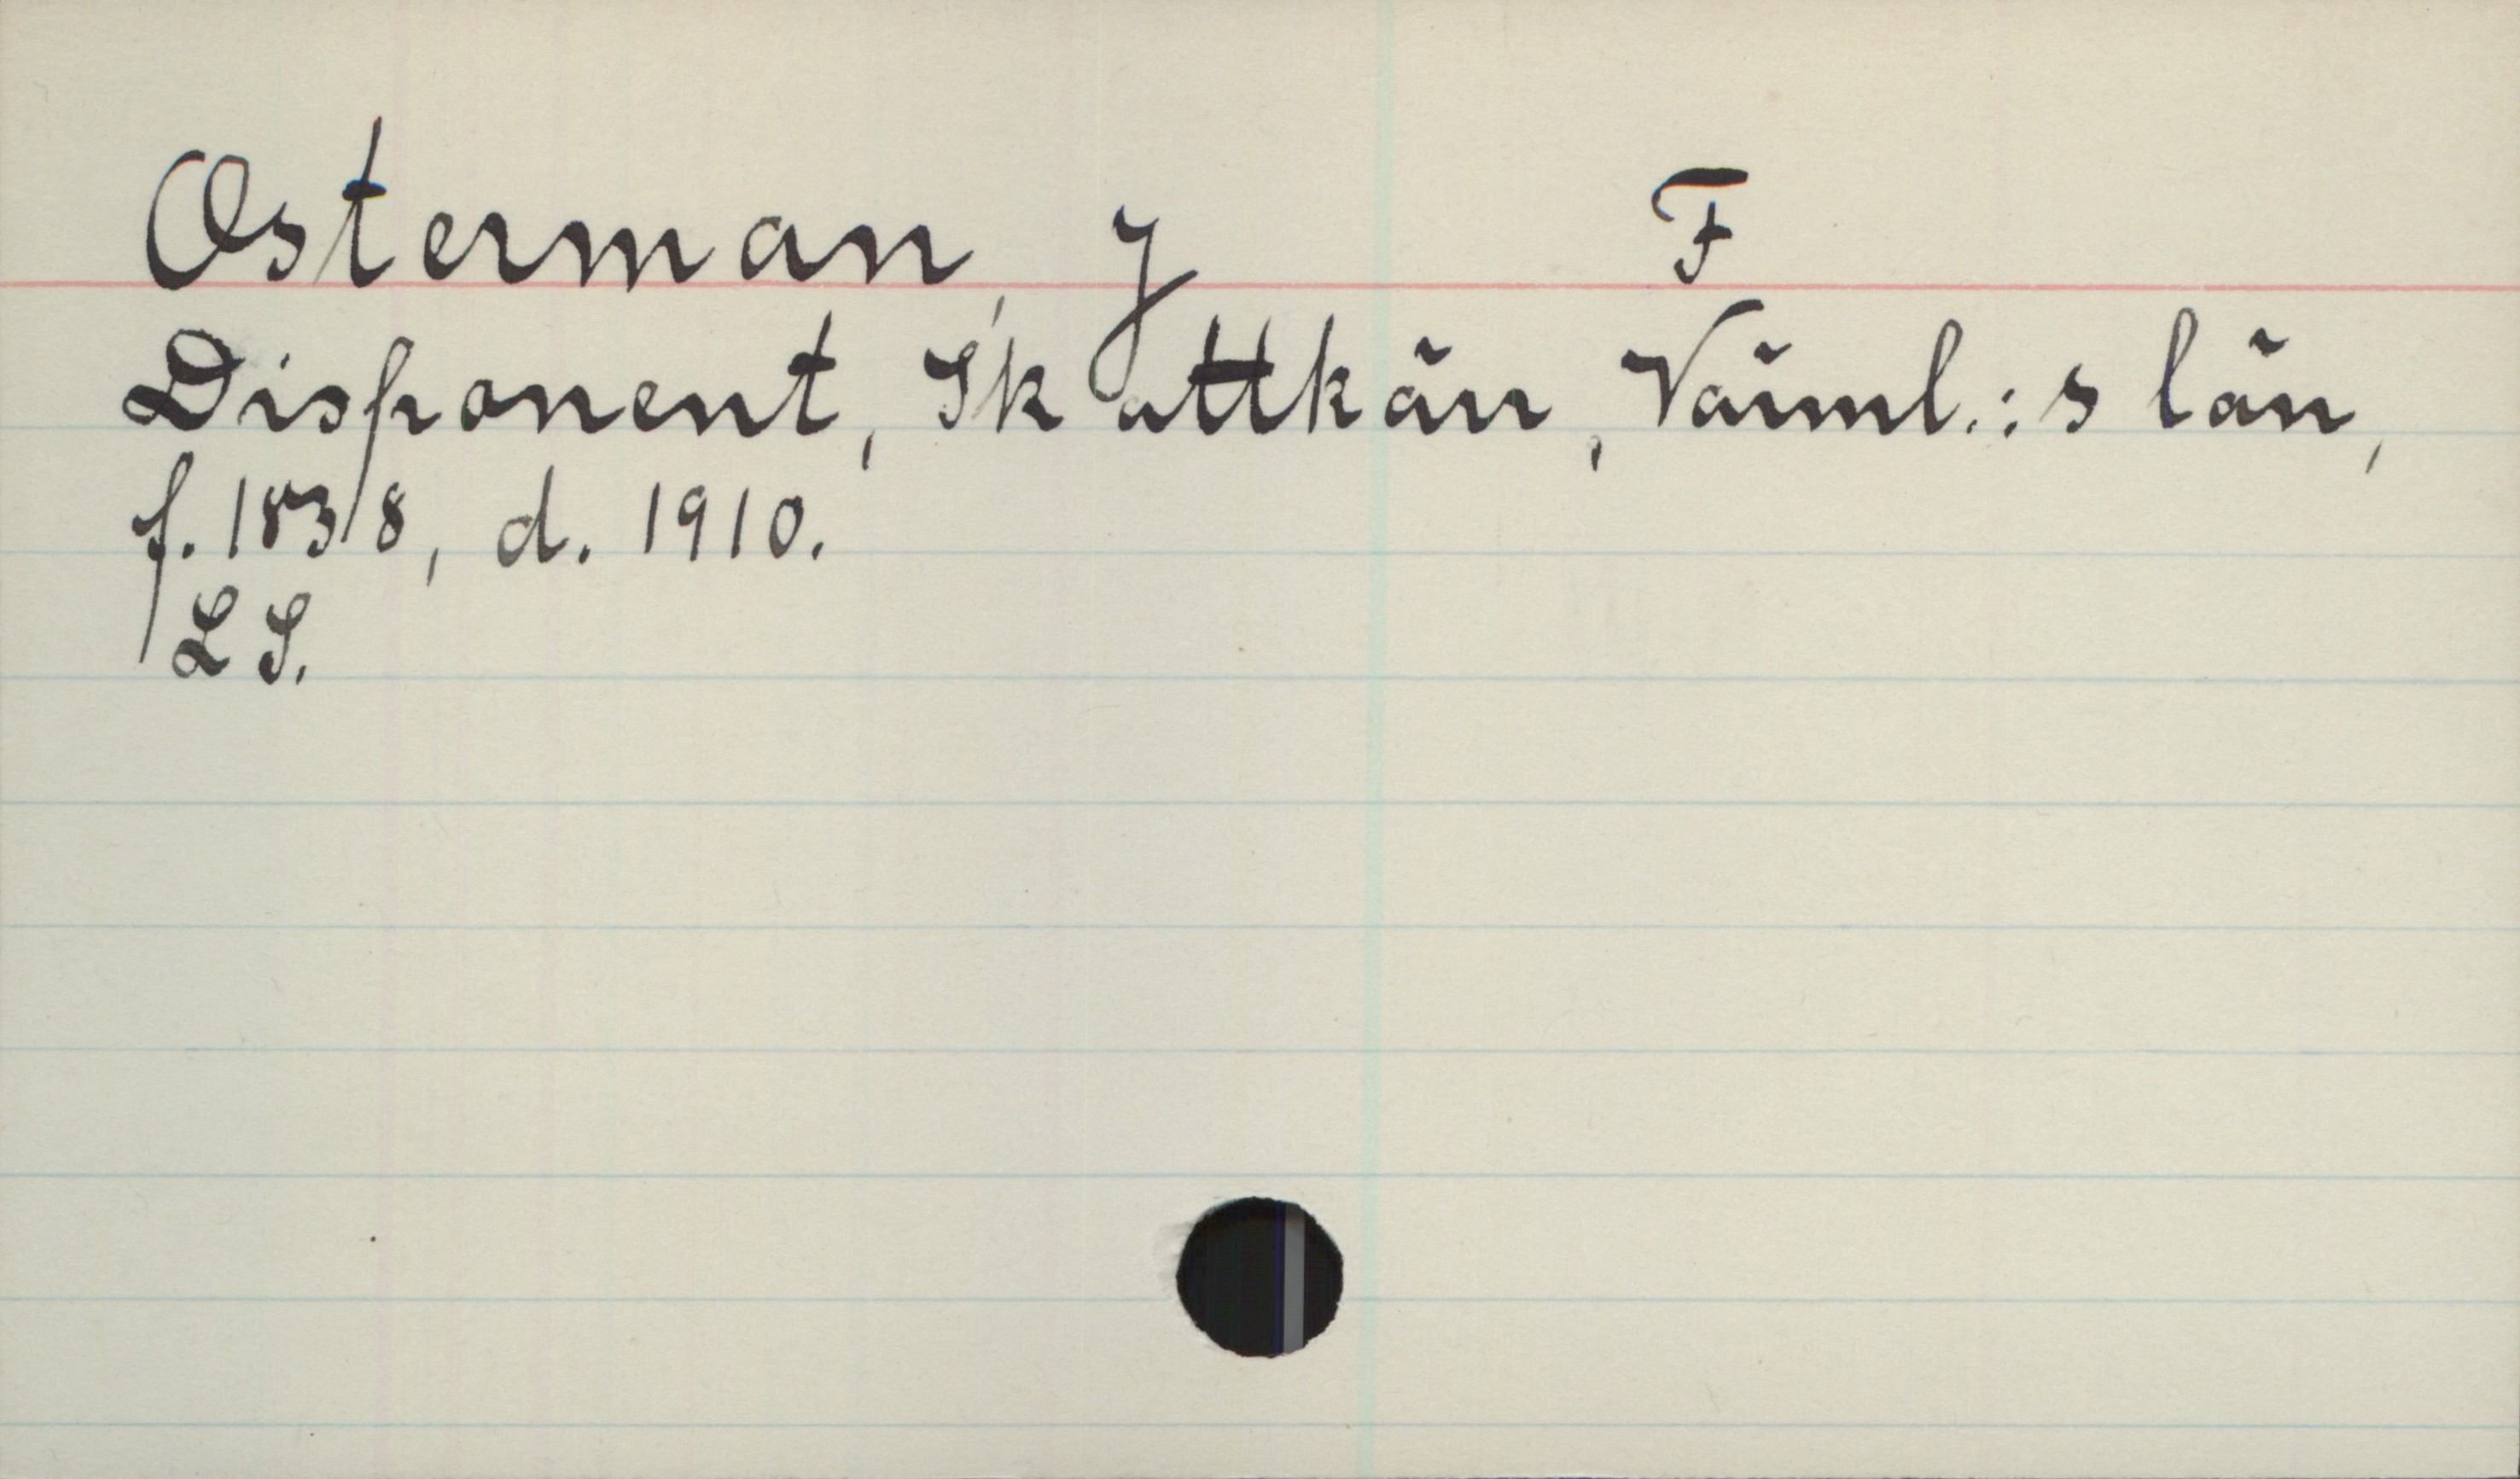 Osterman, J F
Disponent, Skattkärr, Värml.:s län,
f. 1838, d. 1910.
L S.